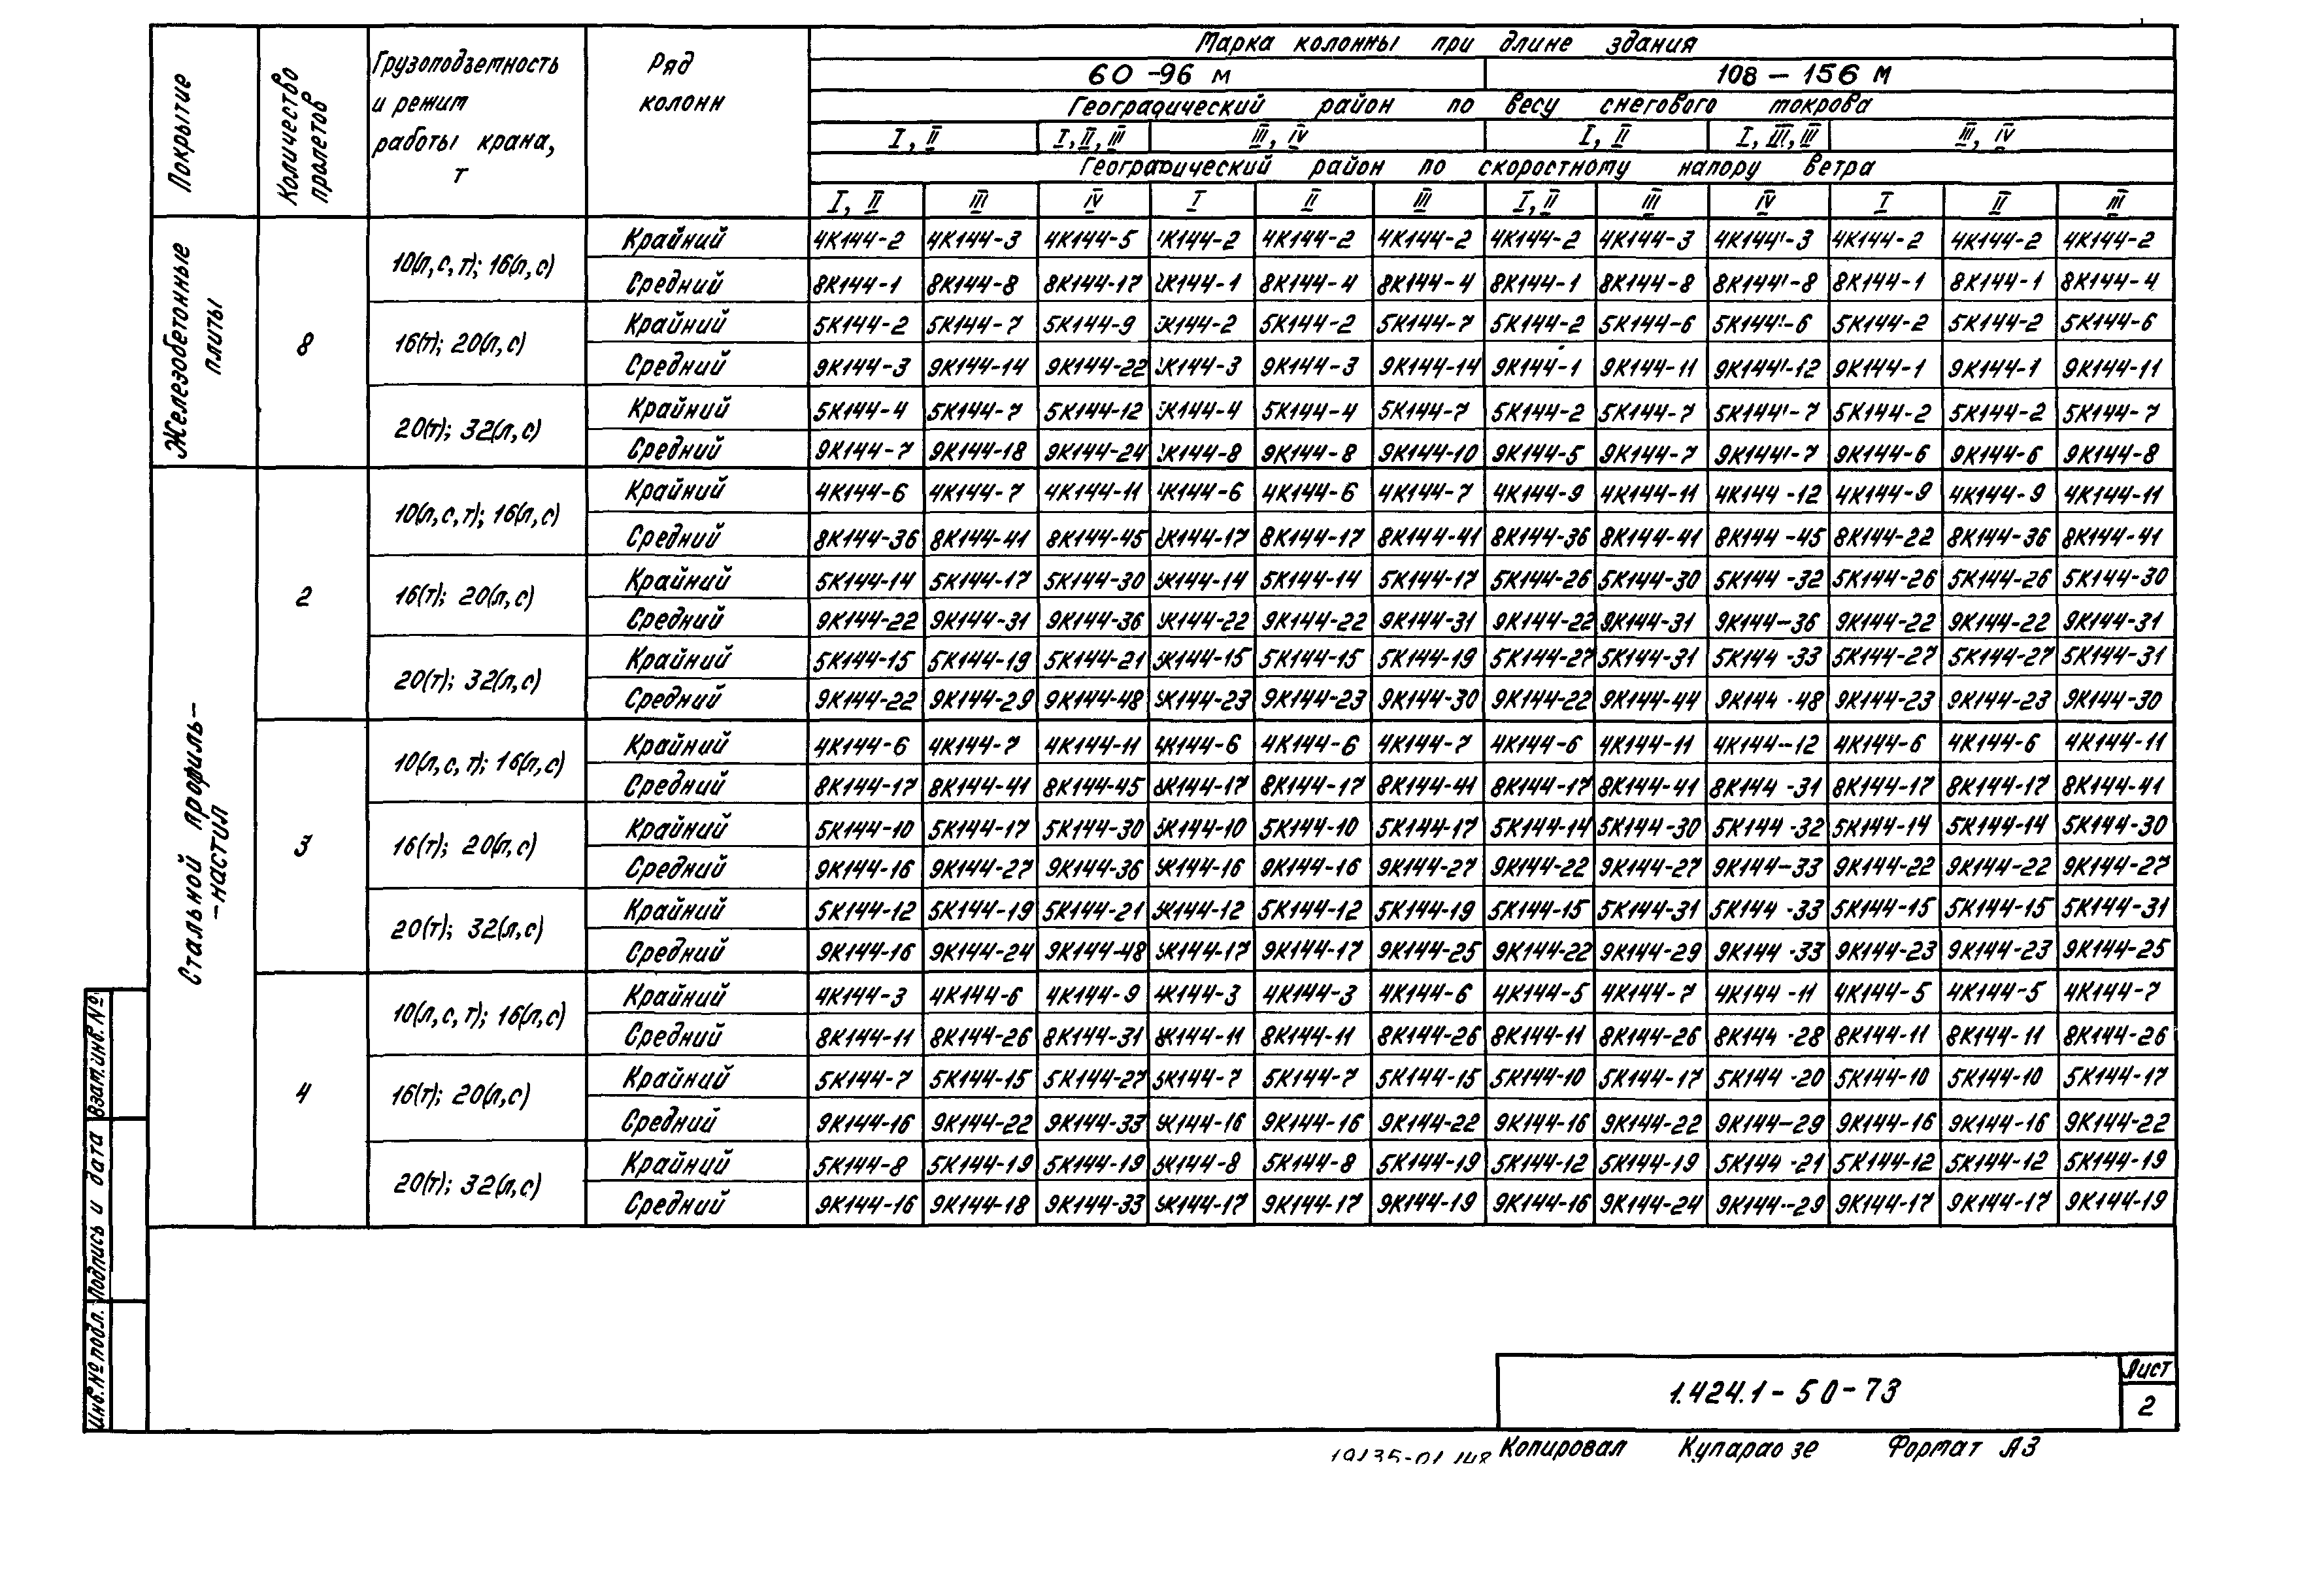 Марка колонны при длине здания
60-96 м 108-156 м
Географический район по весу снегового покрова
I, II I, II, III III, IV I, II I, III, III III, IV
Географический район по скоростному напору ветра
Покрытие Количество пролетов Грузоподъемность и режим работы крана, т Ряд колонн I, II III IV I II III I, II III IV I II III
Железобетонные плиты
8
10(л,с,т); 16(л,с)
Крайний 4К144-2 4К144-3 4К144-5 К144-2 4К144-2 4К144-2 4К144-2 4К144-3 4К144'-3 4К144-2 4К144-2 4К144-2
Средний 8К144-1 8К144-8 8К144-17 К144-1 8К144-4 8К144-4 8К144-1 8К144-8 8К144'-8 8К144-1 8К144-1 8К144-4
16(т); 20(л,с)
Крайний 5К144-2 5К144-7 5К144-9 К144-2 5К144-2 5К144-7 5К144-2 5К144-6 5К144'-6 5К144-2 5К144-2 5К144-6
Средний 9К144-3 9К144-14 9К144-22 К144-3 9К144-3 9К144-14 9К144-1 9К144-11 9К144'-12 9К144-1 9К144-1 9К144-11
20(т); 32(л,с)
Крайний 5К144-4 5К144-7 5К144-12 К144-4 5К144-4 5К144-7 5К144-2 5К144-7 5К144'-7 5К144-2 5К144-2 5К144-7
Средний 9К144-7 9К144-18 9К144-24 К144-8 9К144-8 9К144-10 9К144-5 9К144-7 9К144'-7 9К144-6 9К144-6 9К144-8
Стальной профиль-
-настил
2
10(л,с,т); 16(л,с)
Крайний 4К144-6 4К144-7 4К144-11 К144-6 4К144-6 4К144-7 4К144-9 4К144-11 4К144-12 4К144-9 4К144-9 4К144-11
Средний 8К144-36 8К144-41 8К144-45 К144-17 8К144-17 8К144-41 8К144-36 8К144-41 8К144-45 8К144-22 8К144-36 8К144-41
16(т); 20(л,с)
Крайний 5К144-14 5К144-17 5К144-30 К144-14 5К144-14 5К144-17 5К144-26 5К144-30 5К144-32 5К144-26 5К144-26 5К144-30
Средний 9К144-22 9К144-31 9К144-36 К144-22 9К144-22 9К144-31 9К144-22 9К144-31 9К144-36 9К144-22 9К144-22 9К144-31
20(т); 32(л,с)
Крайний 5К144-15 5К144-19 5К144-21 К144-15 5К144-15 5К144-19 5К144-27 5К144-31 5К144-33 5К144-27 5К144-27 5К144-31
Средний 9К144-22 9К144-29 9К144-48 К144-23 9К144-23 9К144-30 9К144-22 9К144-44 9К144-48 9К144-23 9К144-23 9К144-30
3
10(л,с,т); 16(л,с)
Крайний 4К144-6 4К144-7 4К144-11 4К144-6 4К144-6 4К144-7 4К144-6 4К144-11 4К144-12 4К144-6 4К144-6 4К144-11
Средний 8К144-17 8К144-41 8К144-45 8К144-17 8К144-17 8К144-41 8К144-17 8К144-41 8К144-31 8К144-17 8К144-17 8К144-41
16(т); 20(л,с)
Крайний 5К144-10 5К144-17 5К144-30 5К144-10 5К144-10 5К144-17 5К144-14 5К144-30 5К144-32 5К144-14 5К144-14 5К144-30
Средний 9К144-16 9К144-27 9К144-36 К144-16 9К144-16 9К144-27 9К144-22 9К144-27 9К144-33 9К144-22 9К144-22 9К144-27
20(т); 32(л,с)
Крайний 5К144-12 5К144-19 5К144-21 К144-12 5К144-12 5К144-19 5К144-15 5К144-31 5К144-33 5К144-15 5К144-15 5К144-31
Средний 9К144-16 9К144-24 9К144-48 К144-17 9К144-17 9К144-25 9К144-22 9К144-29 9К144-33 9К144-23 9К144-23 9К144-25
4
10(л,с,т); 16(л,с)
Крайний 4К144-3 4К144-6 4К144-9 4К144-3 4К144-3 4К144-6 4К144-5 4К144-7 4К144-11 4К144-5 4К144-5 4К144-7
Средний 8К144-11 8К144-26 8К144-31 8К144-11 8К144-11 8К144-26 8К144-11 8К144-26 8К144-28 8К144-11 8К144-11 8К144-26
16(т); 20(л,с)
Крайний 5К144-7 5К144-15 5К144-27 5К144-7 5К144-7 5К144-15 5К144-10 5К144-17 5К144-20 5К144-10 5К144-10 5К144-17
Средний 9К144-16 9К144-22 9К144-33 9К144-16 9К144-16 9К144-22 9К144-16 9К144-22 9К144-29 9К144-16 9К144-16 9К144-22
20(т); 32(л,с)
Крайний 5К144-8 5К144-19 5К144-19 5К144-8 5К144-8 5К144-19 5К144-12 5К144-19 5К144-21 5К144-12 5К144-12 5К144-19
Средний 9К144-16 9К144-18 9К144-33 9К144-17 9К144-17 9К144-19 9К144-16 9К144-24 9К144-29 9К144-17 9К144-17 9К144-19
Взам.инв.№
Подпись и дата
Инв.№ подл.
1.424.1-50-73
Лист
2
19135-01 148 Копировал Формат А3